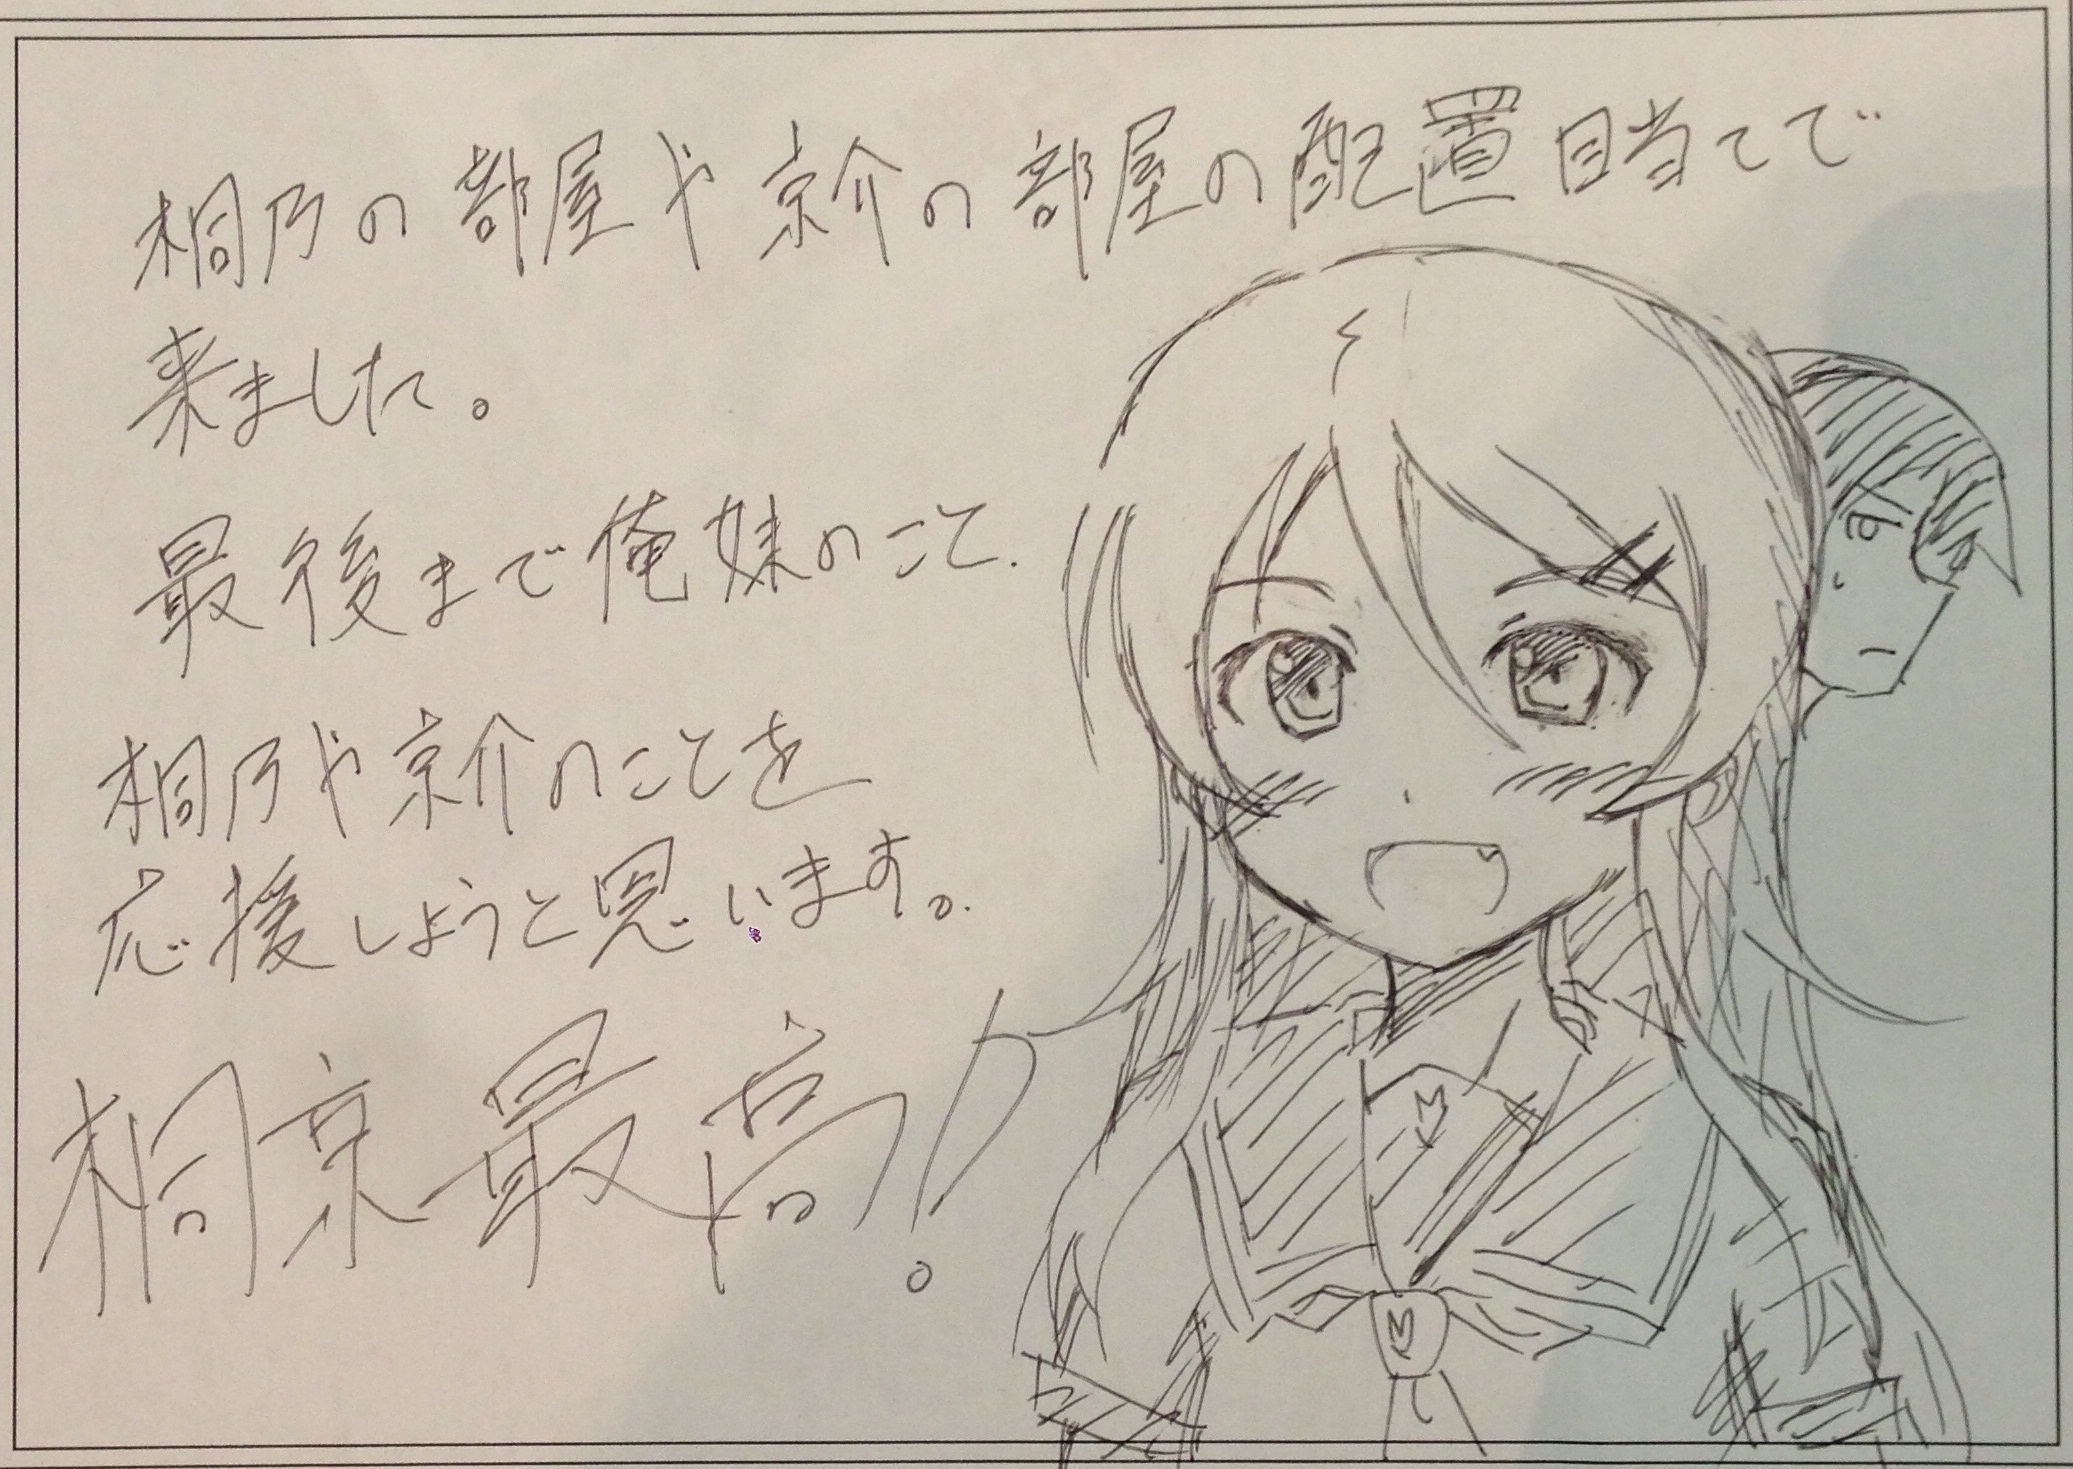 桐乃の部屋や京介の部屋の配置目当てで
来ました。
最後まで俺妹のこと、
桐乃や京介のことを
応援しようと思います。
桐京最高!